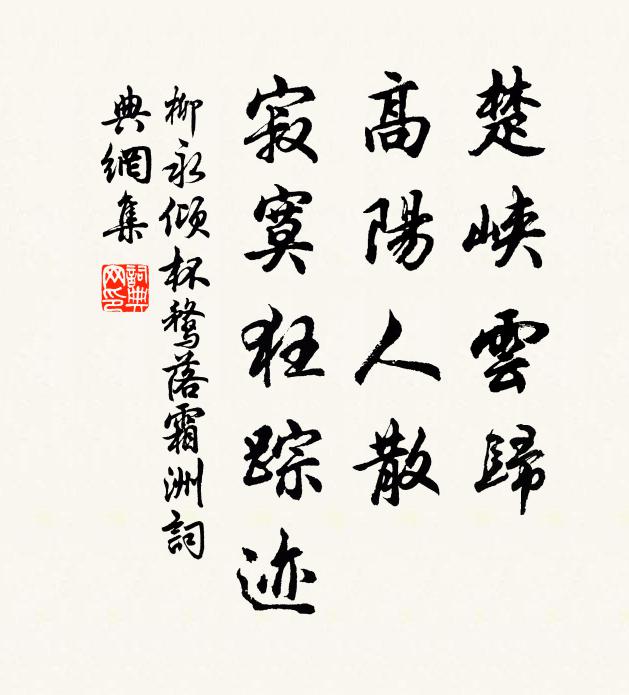 楚峽雲歸
高陽人散
寂寞狂踪迹
柳永傾杯鶩落霜洲詞
典網集
詞典网印